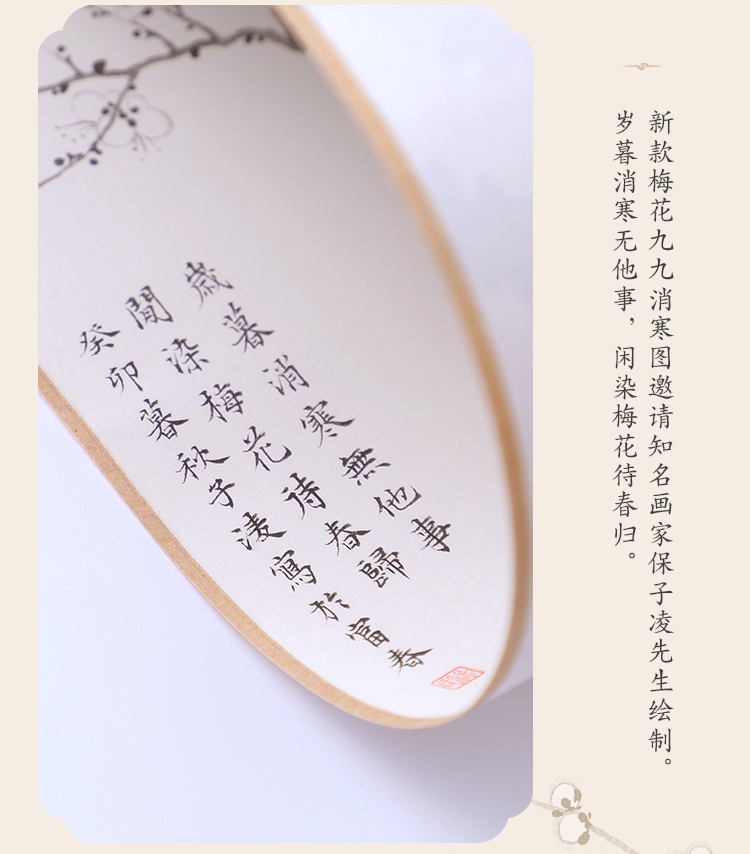 新款梅花九九消寒图邀请知名画家保子凌先生绘制。
岁暮消寒无他事，闲染梅花待春归。
歲暮消寒無他事
間染梅花待春歸
癸卯暮秋子淩寫於富春